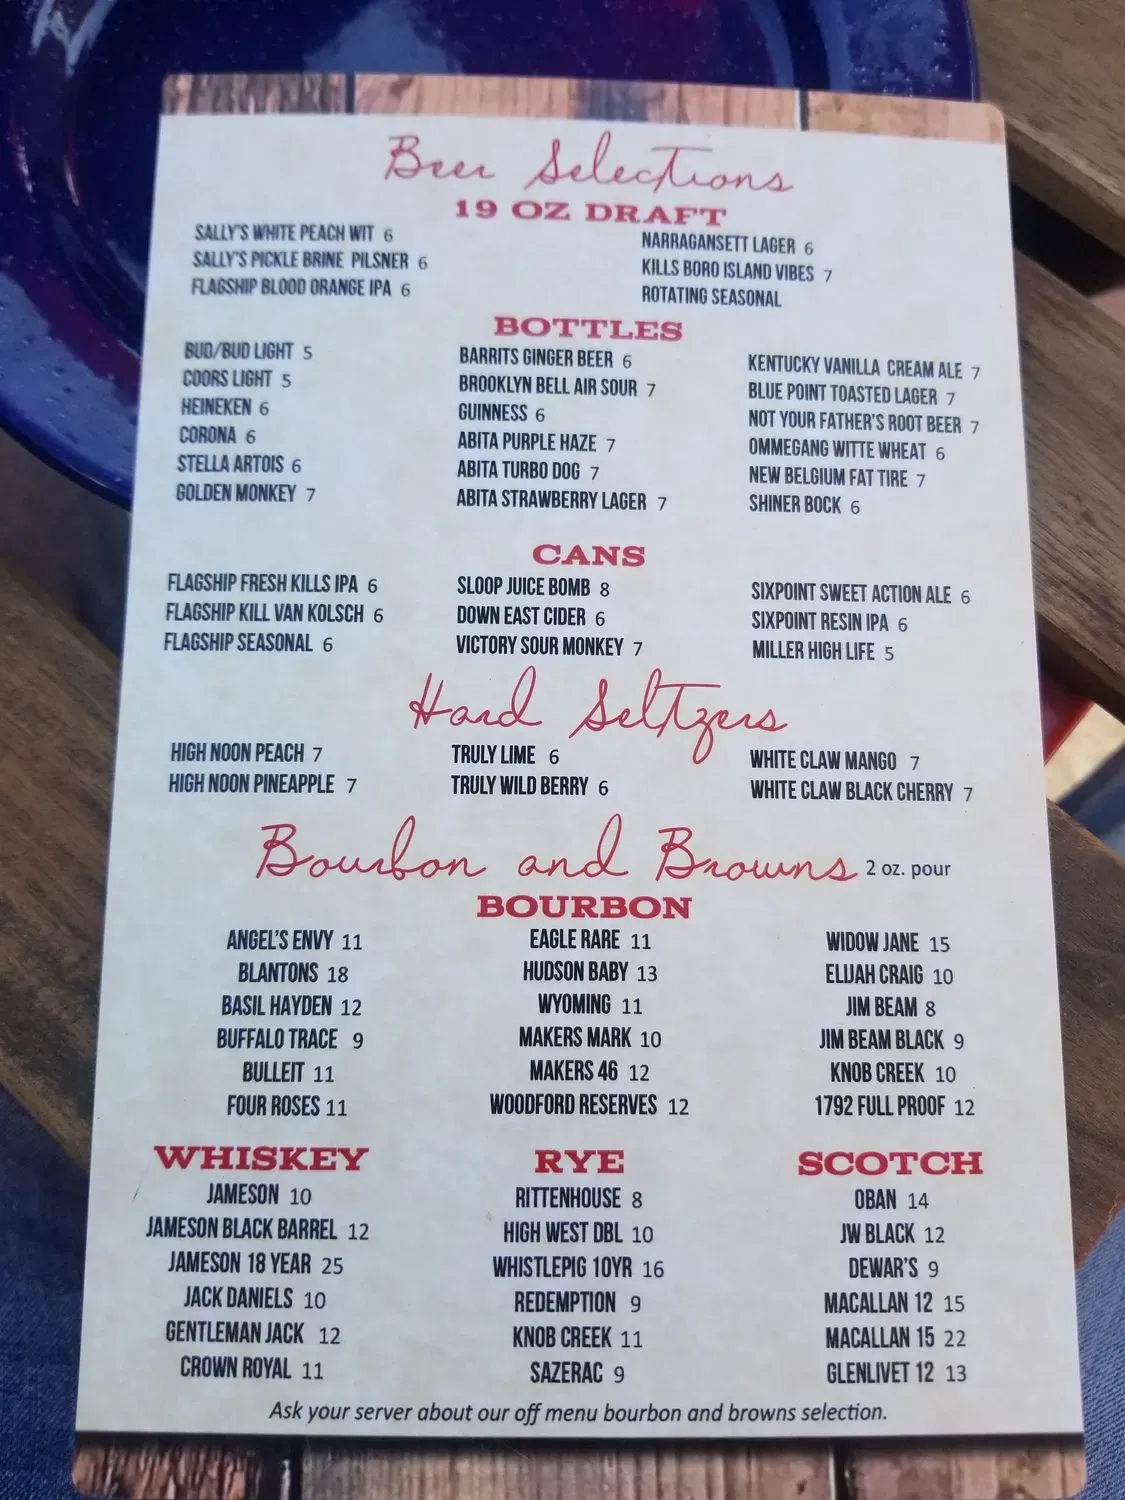 Beer Selections
19 OZ DRAFT
SALLY'S WHITE PEACH WIT 6
SALLY'S PICKLE BRINE PILSNER 6
FLAGSHIP BLOOD ORANGE IPA 6
NARRAGANSETT LAGER 6
KILLS BORO ISLAND VIBES 7
ROTATING SEASONAL
BOTTLES
BUD/BUD LIGHT 5
COORS LIGHT 5
HEINEKEN 6
CORONA 6
STELLA ARTOIS 6
GOLDEN MONKEY 7
BARRITS GINGER BEER 6
BROOKLYN BELL AIR SOUR 7
GUINNESS 6
ABITA PURPLE HAZE 7
ABITA TURBO DOG 7
ABITA STRAWBERRY LAGER 7
KENTUCKY VANILLA CREAM ALE 7
BLUE POINT TOASTED LAGER 7
NOT YOUR FATHER'S ROOT BEER 7
OMMEGANG WITTE WHEAT 6
NEW BELGIUM FAT TIRE 7
SHINER BOCK 6
CANS
FLAGSHIP FRESH KILLS IPA 6
FLAGSHIP KILL VAN KOLSCH 6
FLAGSHIP SEASONAL 6
SLOOP JUICE BOMB 8
DOWN EAST CIDER 6
VICTORY SOUR MONKEY 7
SIXPOINT SWEET ACTION ALE 6
SIXPOINT RESIN IPA 6
MILLER HIGH LIFE 5
Hard Seltzers
HIGH NOON PEACH 7
HIGH NOON PINEAPPLE 7
TRULY LIME 6
TRULY WILD BERRY 6
WHITE CLAW MANGO 7
WHITE CLAW BLACK CHERRY 7
Bourbon and Browns 2 oz. pour
BOURBON
ANGEL'S ENVY 11
BLANTONS 18
BASIL HAYDEN 12
BUFFALO TRACE 9
BULLEIT 11
FOUR ROSES 11
EAGLE RARE 11
HUDSON BABY 13
WYOMING 11
MAKERS MARK 10
MAKERS 46 12
WOODFORD RESERVES 12
WIDOW JANE 15
ELIJAH CRAIG 10
JIM BEAM 8
JIM BEAM BLACK 9
KNOB CREEK 10
1792 FULL PROOF 12
WHISKEY
JAMESON 10
JAMESON BLACK BARREL 12
JAMESON 18 YEAR 25
JACK DANIELS 10
GENTLEMAN JACK 12
CROWN ROYAL 11
RYE
RITTENHOUSE 8
HIGH WEST DBL 10
WHISTLEPIG 10YR 16
REDEMPTION 9
KNOB CREEK 11
SAZERAC 9
SCOTCH
OBAN 14
JW BLACK 12
DEWAR'S 9
MACALLAN 12 15
MACALLAN 15 22
GLENLIVET 12 13
Ask your server about our off menu bourbon and browns selection.